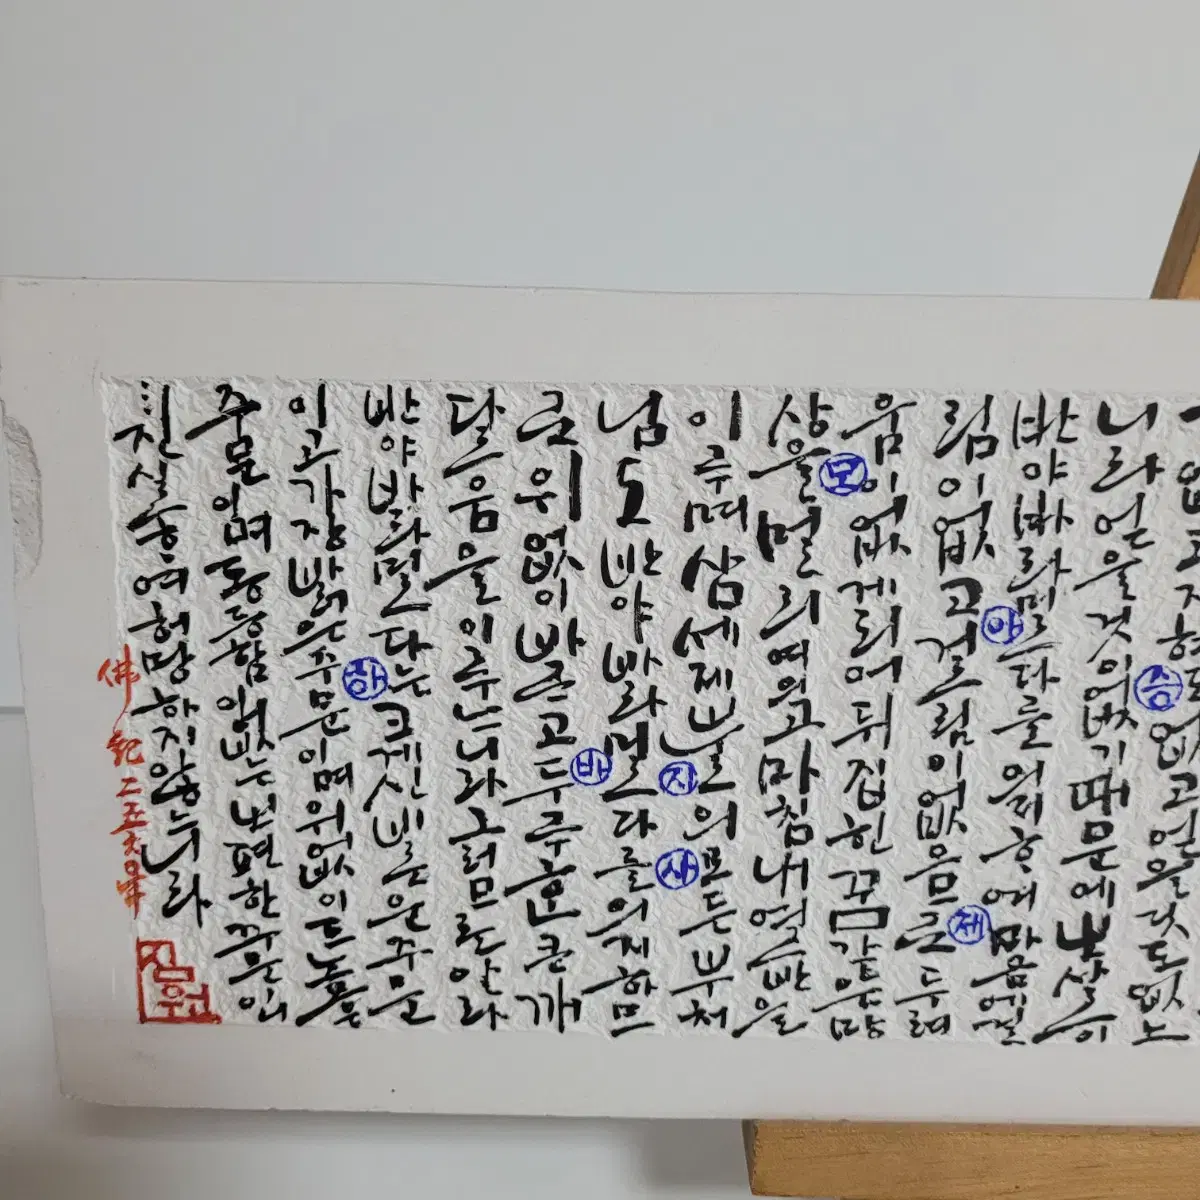 없고 지혜도 없고 얻을 것도 없느
니라 얻을 것이 없기 때문에 보살들이
반야바라밀다를 의지하여 마음에 걸
림이 없고 걸림이 없으므로 두려
움이 없게 되어 뒤집힌 꿈같은 망
상을 멀리 여의고 마침내 열반을
이루며 삼세제불의 모든 부처
님도 반야바라밀다를 의지하므
로 위없이 바르고 두루한 큰 깨
달음을 이루느니라 그러므로 알라
반야바라밀다는 크게 신비로운 주문
이고 가장 밝은 주문이며 위없이 높은
주문이며 동등함이 없는 주문이니
진실하여 허망하지 않느니라
佛紀二五六年
증
야
제
모
지
사
바
하